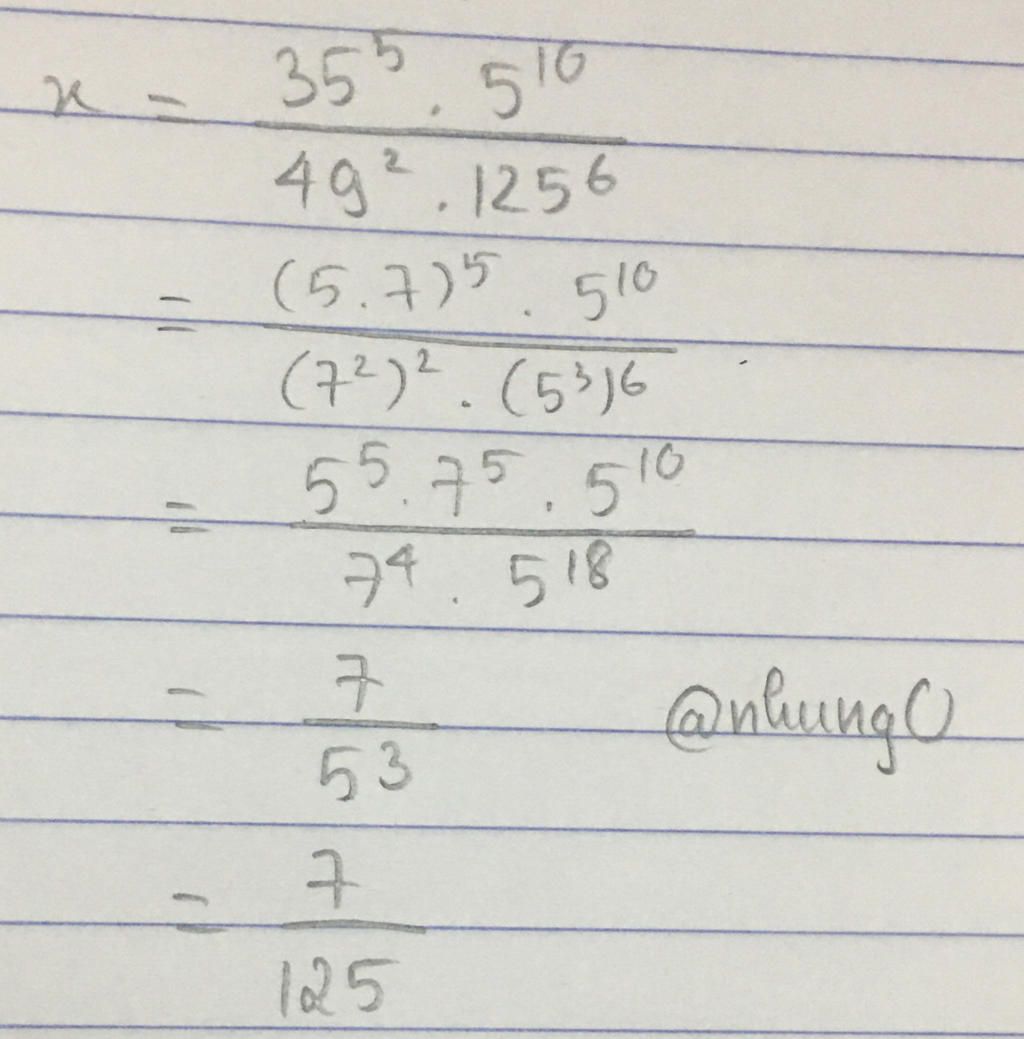 x = 35⁵ . 5¹⁰ / 49² . 125⁶
= (5.7)⁵ . 5¹⁰ / (7²)² . (5³)⁶
= 5⁵ . 7⁵ . 5¹⁰ / 7⁴ . 5¹⁸
= 7 / 5³ @nhung()
= 7 / 125